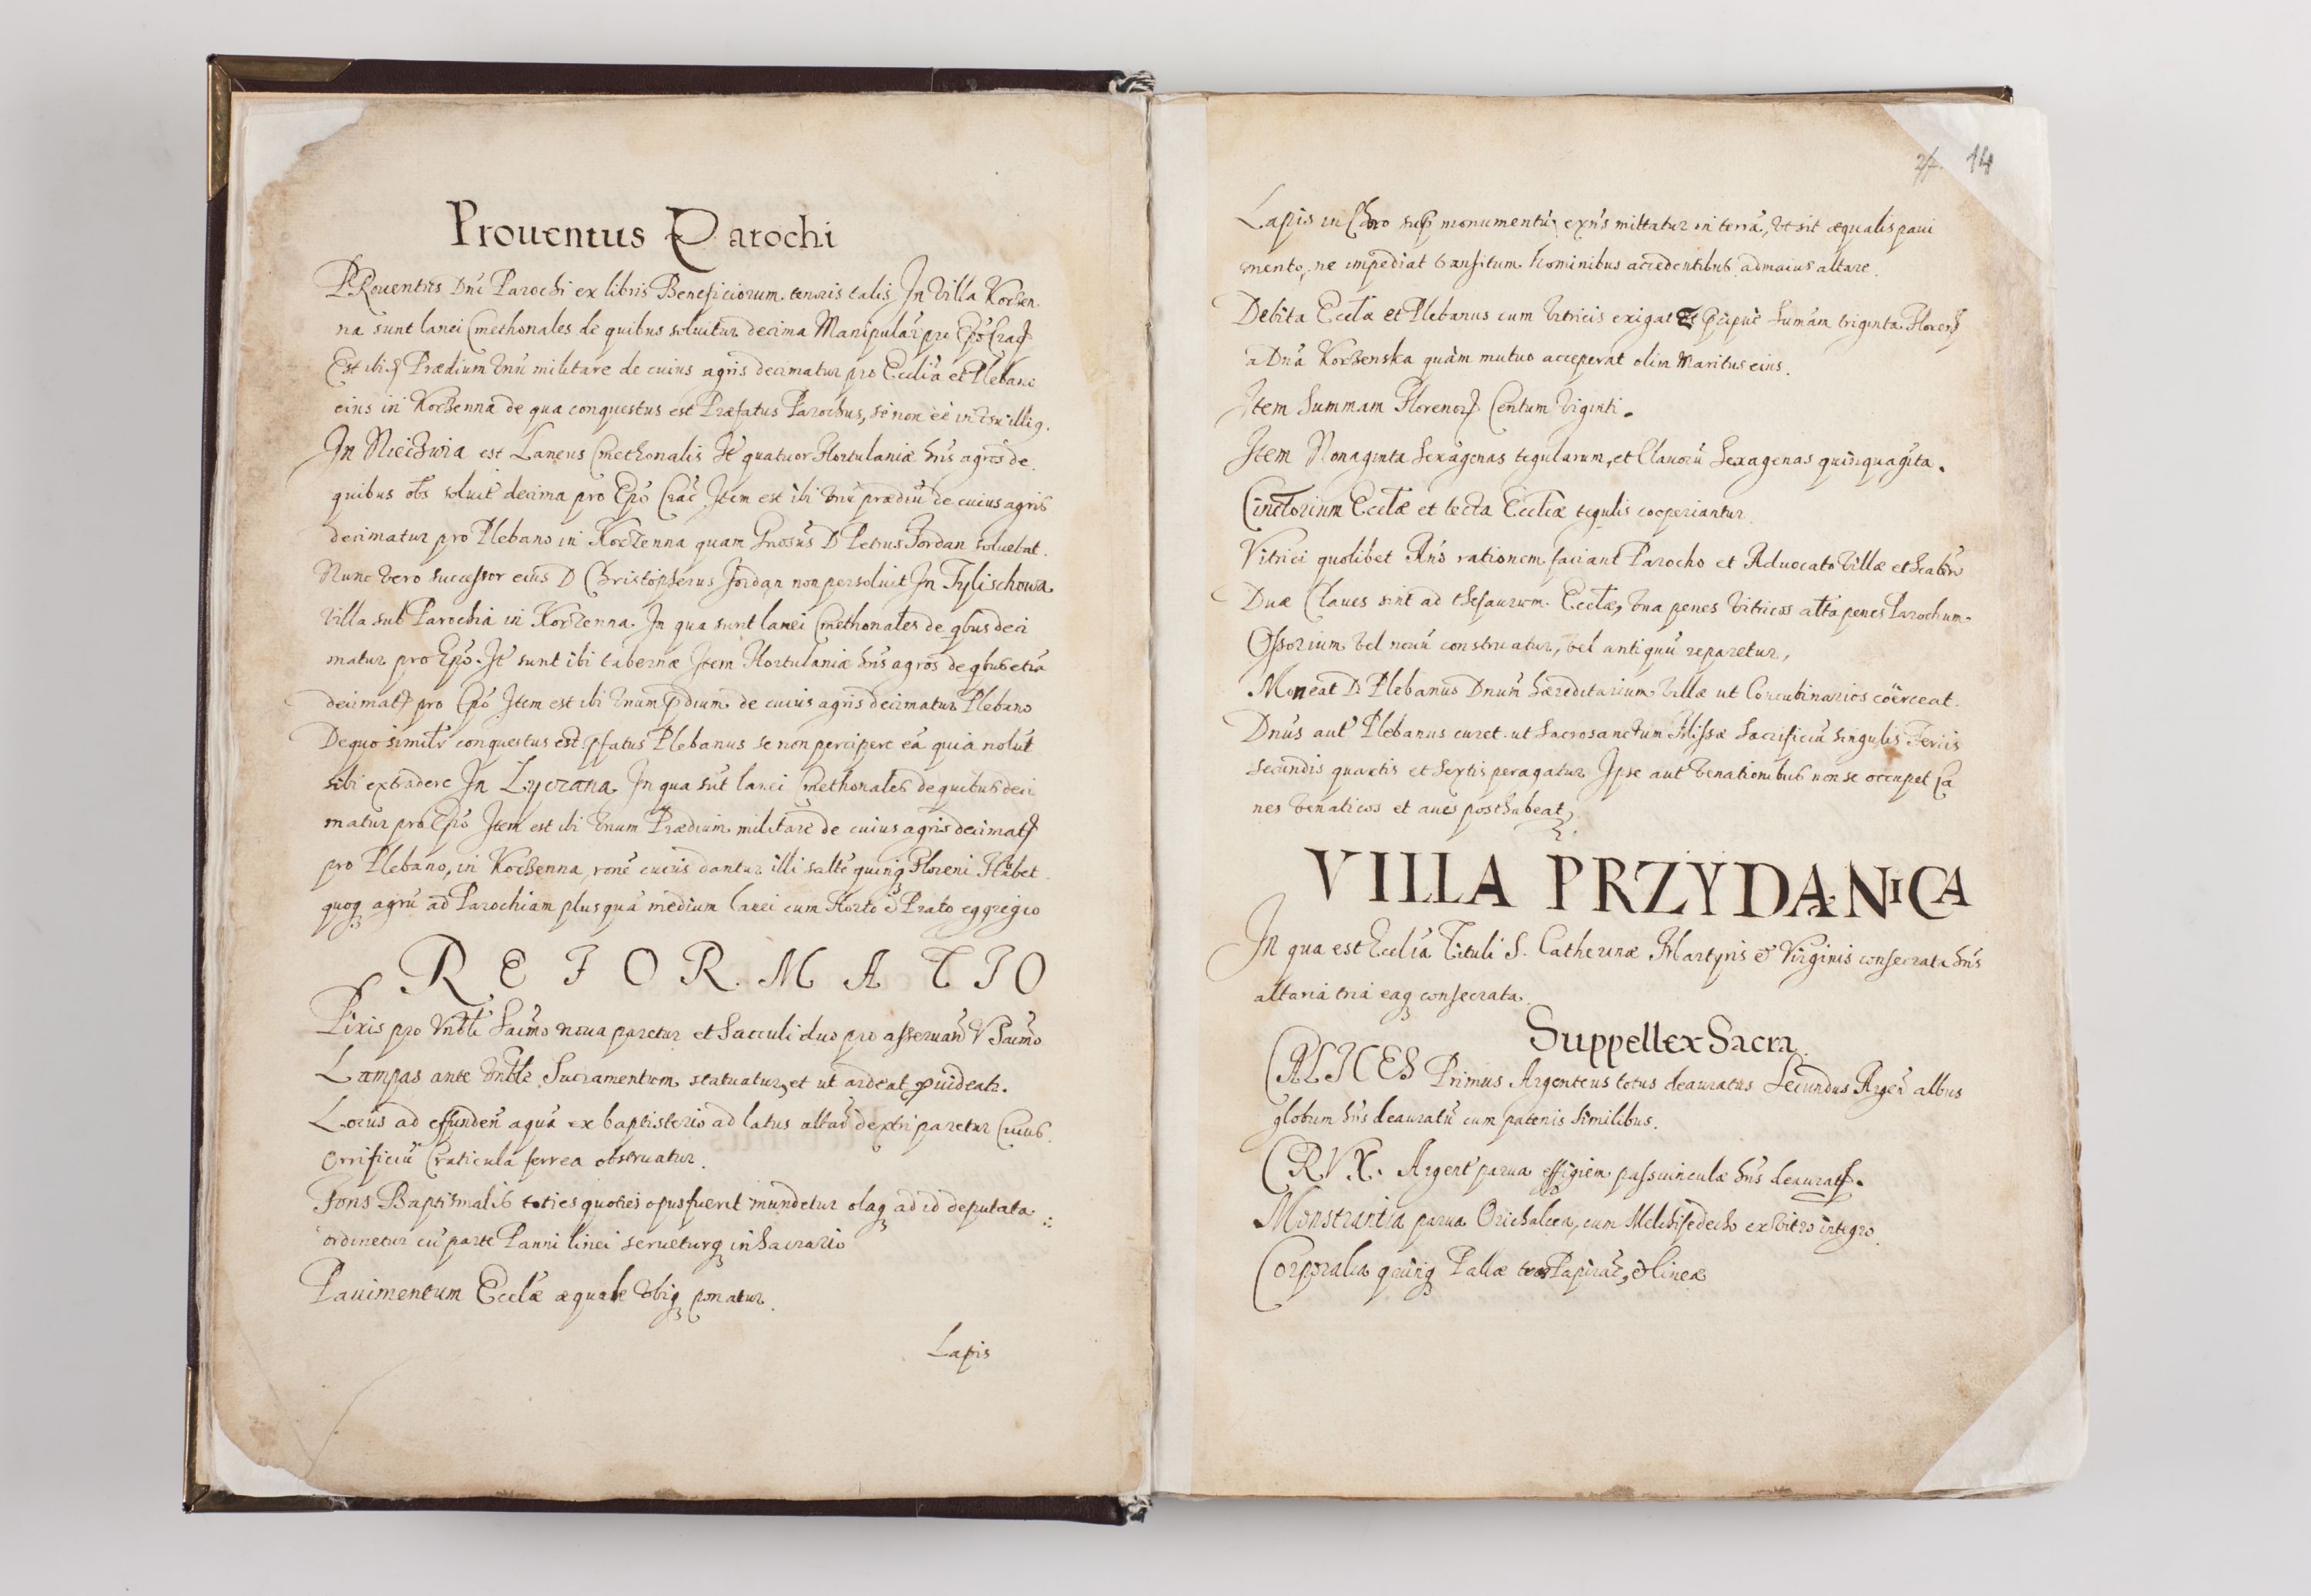 Prouentus Parochi
PRouentus Dni Parochi ex libris Beneficiorum tenoris talis In Villa Korzen
na sunt lanei Cmethonales de quibus soluitur decima Manipular pro Epo Crac
Est ibi Prædium vnu militare de cuius agris decimatur pro Ecclia et Plebano
eius in Korzenna de qua conquestus est Præfatus Parochus, se non ee in vsu illiq.
In Niecwia est Laneus Cmethonalis It quatuor Hortulaniæ hns agros de
quibus obs soluit decima pro Epo Crac Item est ibi vnu prædiu de cuius agris
decimatur pro Plebano in Korzenna quam Gnosus D Petrus Jordan soluebat.
Nunc vero successor eius D Christopherus Jordan non persoluit In Tylischowa
villa sub Parochia in Korzenna. In qua sunt lanei Cmethonales de qbus deci
matur pro Epo. It sunt ibi tabernæ Item Hortulaniæ hns agros de qbus etia
decimat pro Epo Item est ibi vnum pdium de cuius agris decimatur Plebano
De quo similr conquestus est pfatus Plebanus se non percipere ea quia nolut
sibi extradere In Lyczana In qua sut lanei Cmethonales de quibus deci
matur pro Epo Item est ibi vnum Prædium militare de cuius agris decimat
pro Plebano, in Korzenna, rone cuius dantur illi salte quinq Floreni Habet
quoq agru ad Parochiam plusqua medium lanei cum Horto & Prato eggregio
REFORMATIO
Pixis pro Vnbli Sacmo noua paretur et Sacculi duo pro asseruan V Sacmo
Lampas ante Vnble Sacramentum statuatur, et ut ardeat puideatr.
Locus ad effunden aqua ex baptisterio ad latus altar dextri paretur Cuius
Orrificiu Craticula ferrea obseruatur.
Fons Baptismalis toties quoties opus fuerit mundetur olaq ad id deputata
ordinetur cu parte Panni linei serueturq in Sacrario
Pauimentum Ecclæ æquale vbiq ponatur.
Lapis
27. 14
Lapis in Choro sup monumentu exns mittatur in terra, vt sit æqualis paui
mento, ne impediat transitum hominibus accedentibus ad maius altare.
Debita Ecclæ et Plebanus cum Vitricis exigat Et pcipue Sumam triginta Floren
a Dna Korzenska quam mutuo acceperat olim Maritus eius.
Item Summam Florenor Centum Viginti.
Item Nonaginta Sexagenas tegularum, et Clauoru Sexagenas quinquagita.
Cinctorium Ecclæ et tecta Eccliæ tegulis cooperiantur
Vitrici quolibet Ano rationem faciant Parocho et Aduocato Villæ et Scabin
Duæ Claues sint ad thesaurum Ecclæ, vna penes Vitricos alta penes Parochum.
Ossorium vel nouu construatur, vel antiquu reparetur,
Moneat D Plebanus Dnum hæreditarium Villæ ut Concubinarios coërceat.
Dnus aut Plebanus curet ut Sacrosanctum Missæ Sacrificiu singulis Feriis
secundis quartis et Sextis peragatur Ipse aut Venationibus non se occupet Ca
nes Venaticos et aues post habeat,
VILLA PRZYDANICA
In qua est Ecclia Tituli S. Catherinæ Martyris & Virginis consecrata hns
altaria tria eaq consecrata.
Suppellex Sacra.
CALICES Primus Argenteus totus deauratus Secundus Argen albus
globum hns deauratu cum patenis similibus.
CRVX. Argent parua effigiem passiunculæ hns deaurat.
Monstrantia parua Orichalcea, cum Melchisedecho ex vitro integro.
Corporalia quinq Pallæ tres Papirac, & lineæ